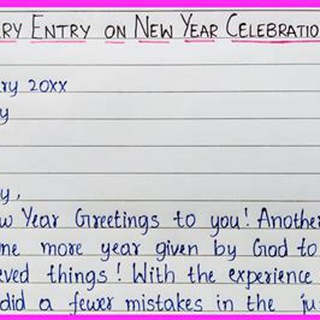 RY ENTRY ON NEW YEAR CELEBRATION
ry 20xx
y
y,
w Year Greetings to you! Another
ne more year given by God to
eved things! With the experience
did a fewer mistakes in the ju